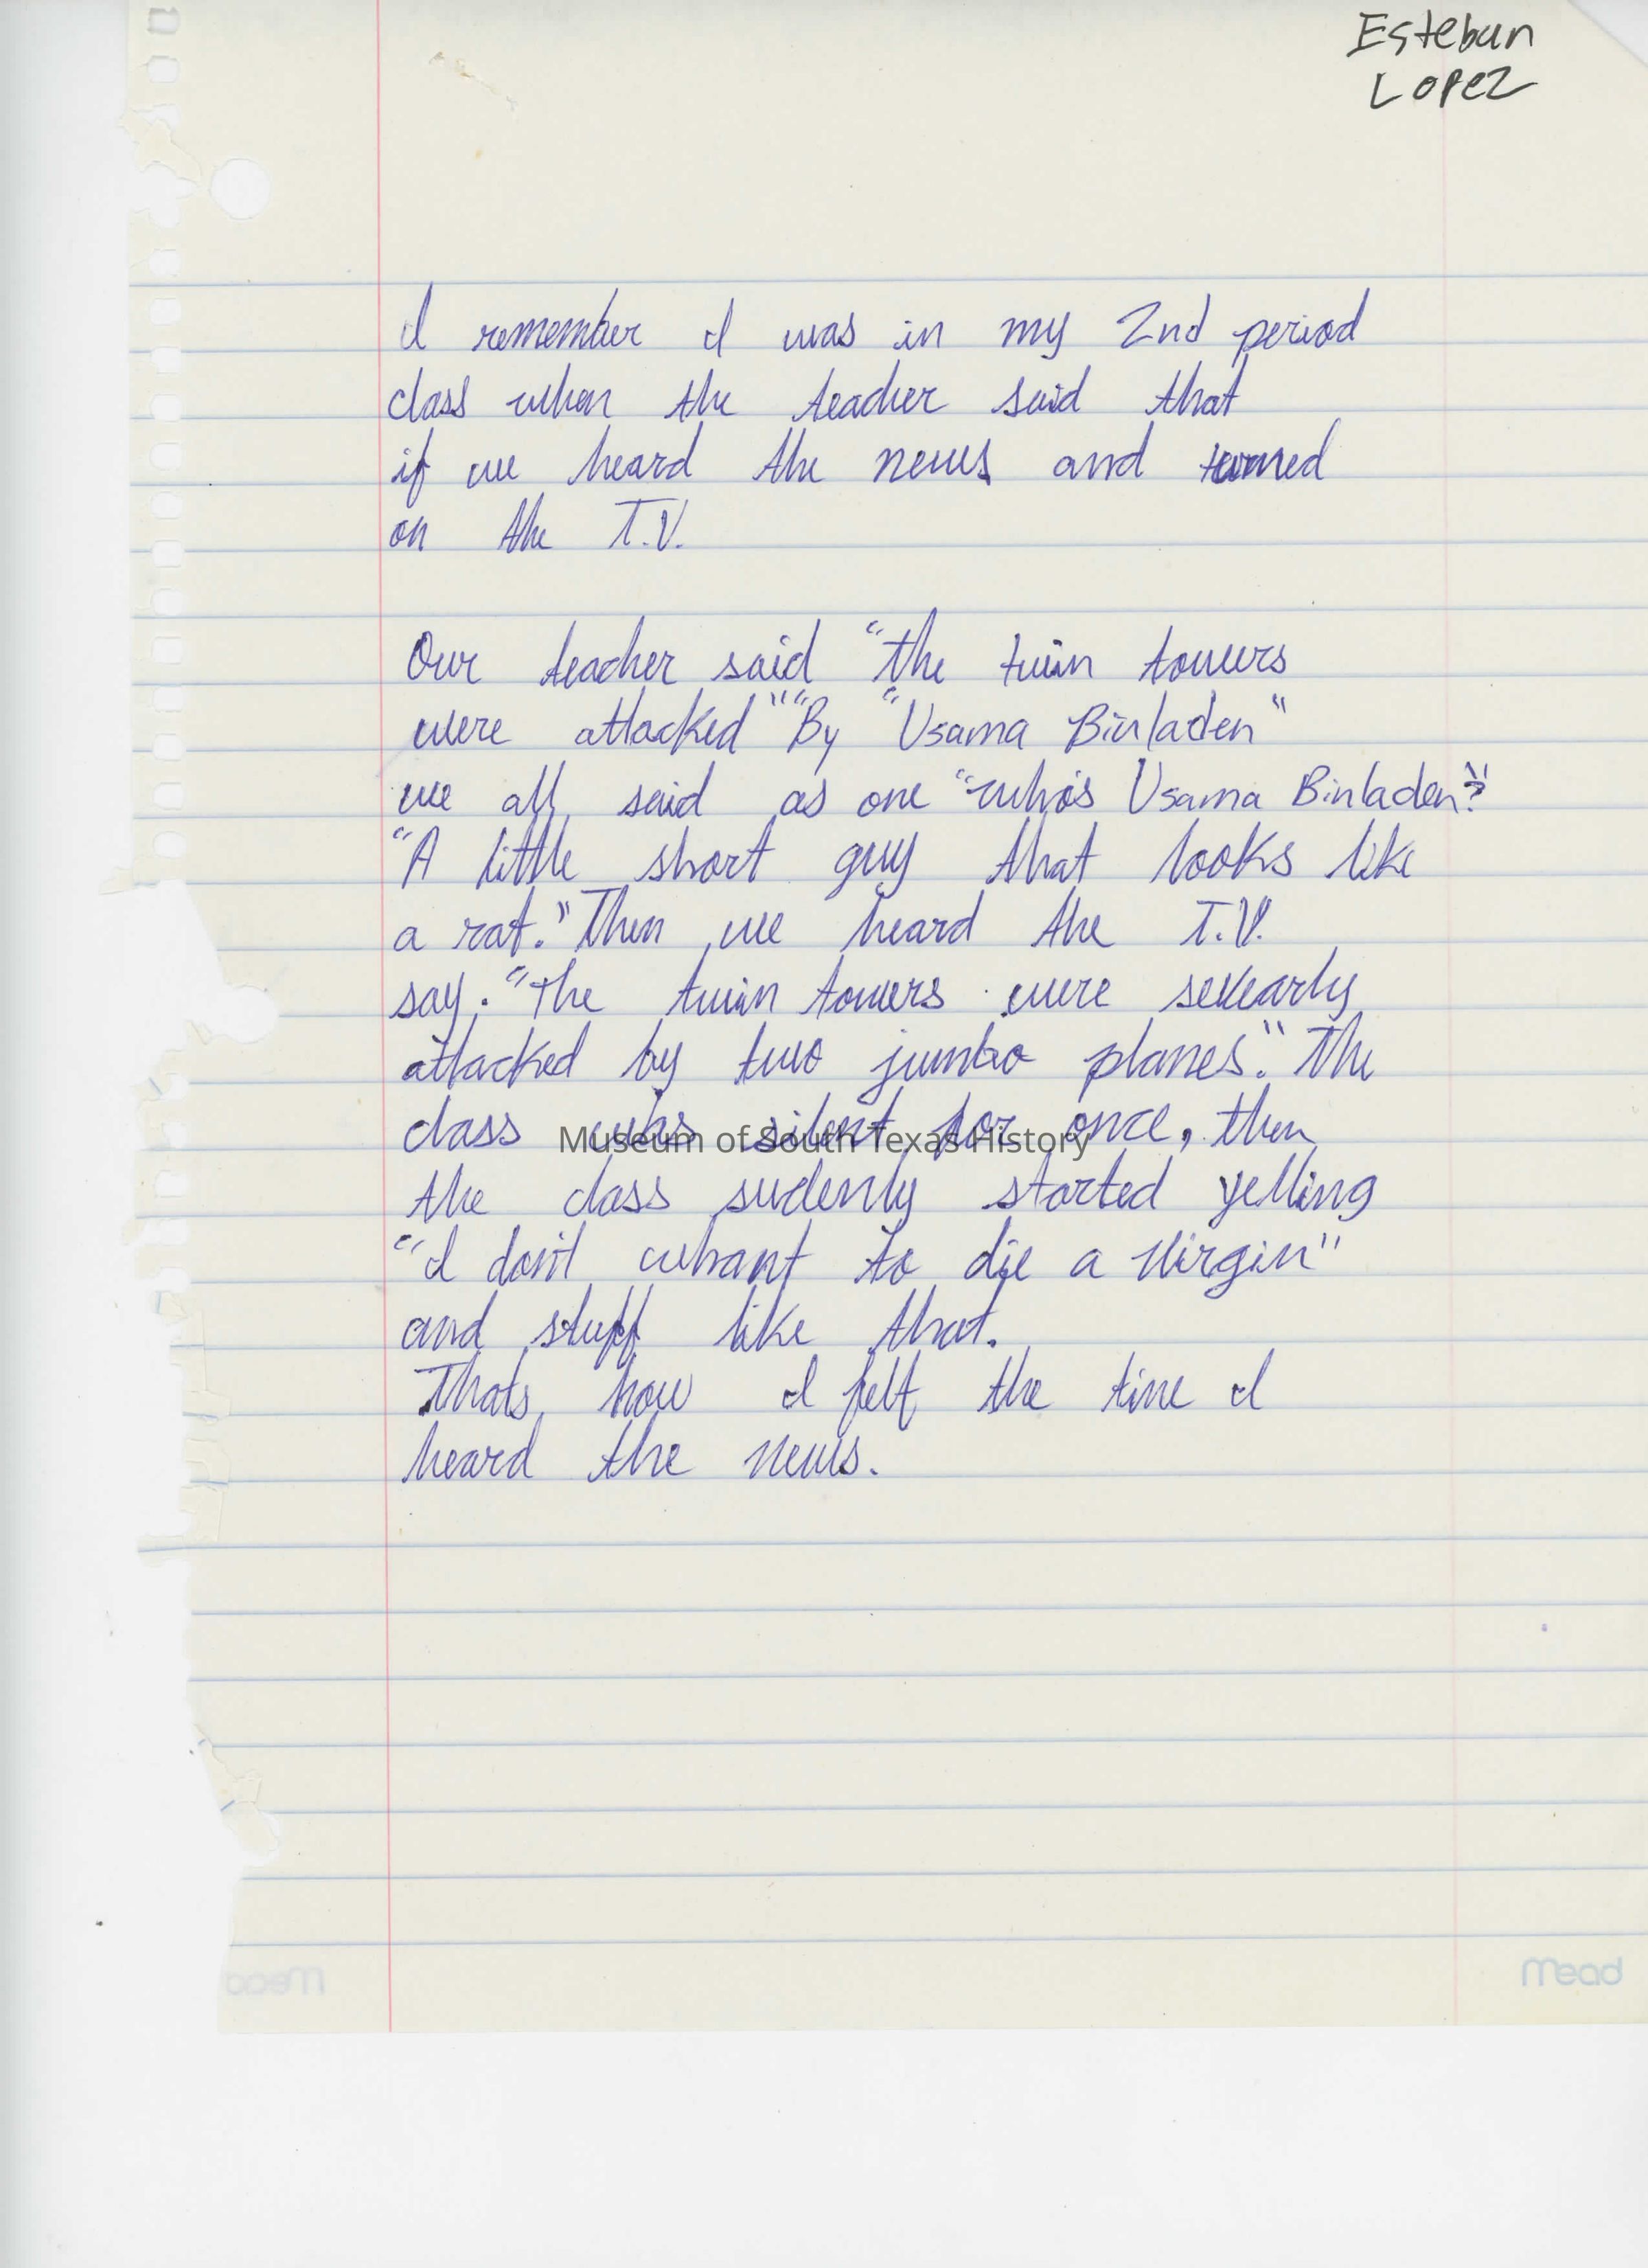 Esteban
Lopez
I remember I was in my 2nd period
class when the teacher said that
if we heard the news and turned
on the T.V.
Our teacher said "the twin towers
were attacked" "By "Usama Binladen"
we all said as one "who's Usama Binladen?"
"A little short guy that looks like
a rat." Then we heard the T.V.
say. "The twin towers were sevearly
attacked by two jumbo planes." The
class whas silent for once, then
the class sudenly started yelling
"I don't whant to die a virgin"
and stuff like that.
Thats how I felt the time I
heard the news.
Museum of South Texas History
Mead